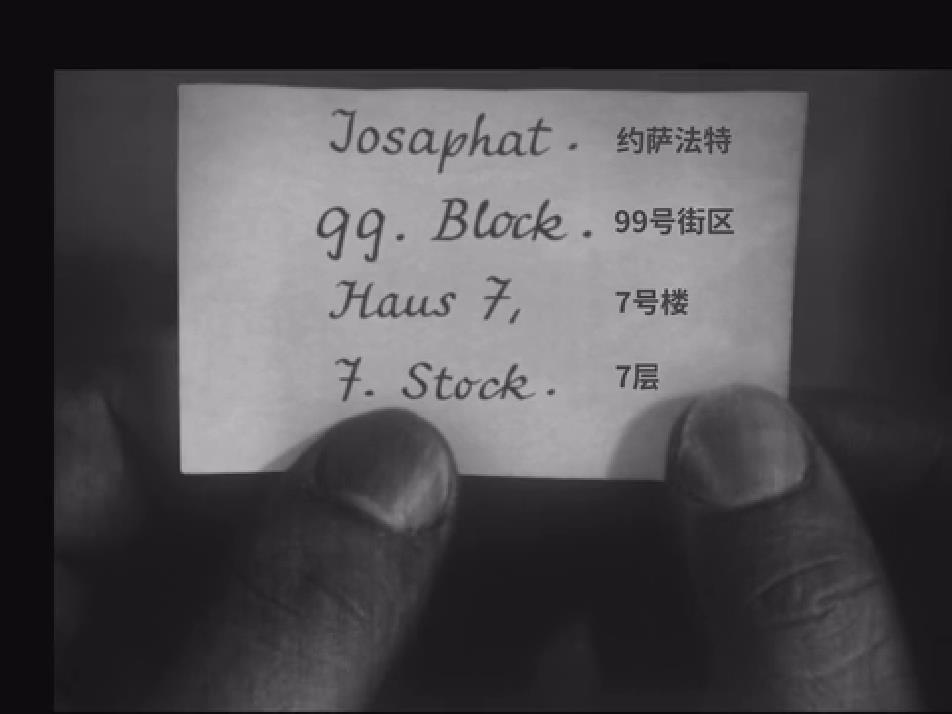 Josaphat. 约萨法特
99. Block. 99号街区
Haus 7, 7号楼
7. Stock. 7层